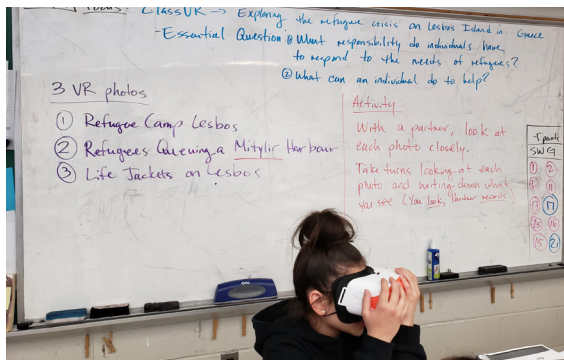 Focus: ClassVR → Exploring the refugee crisis on Lesbos Island in Greece
-Essential Question ① What responsibility do individuals have
to respond to the needs of refugees?
② What can an individual do to help?
3 VR photos
① Refugee Camp Lesbos
② Refugees Queuing a Mitylir Harbour
③ Life Jackets on Lesbos
Activity
With a partner, look at
each photo closely.
Take turns looking at each
photo and writing down what
you see (You look, Partner records)
points
SW G
② 
11
17
16
15 21